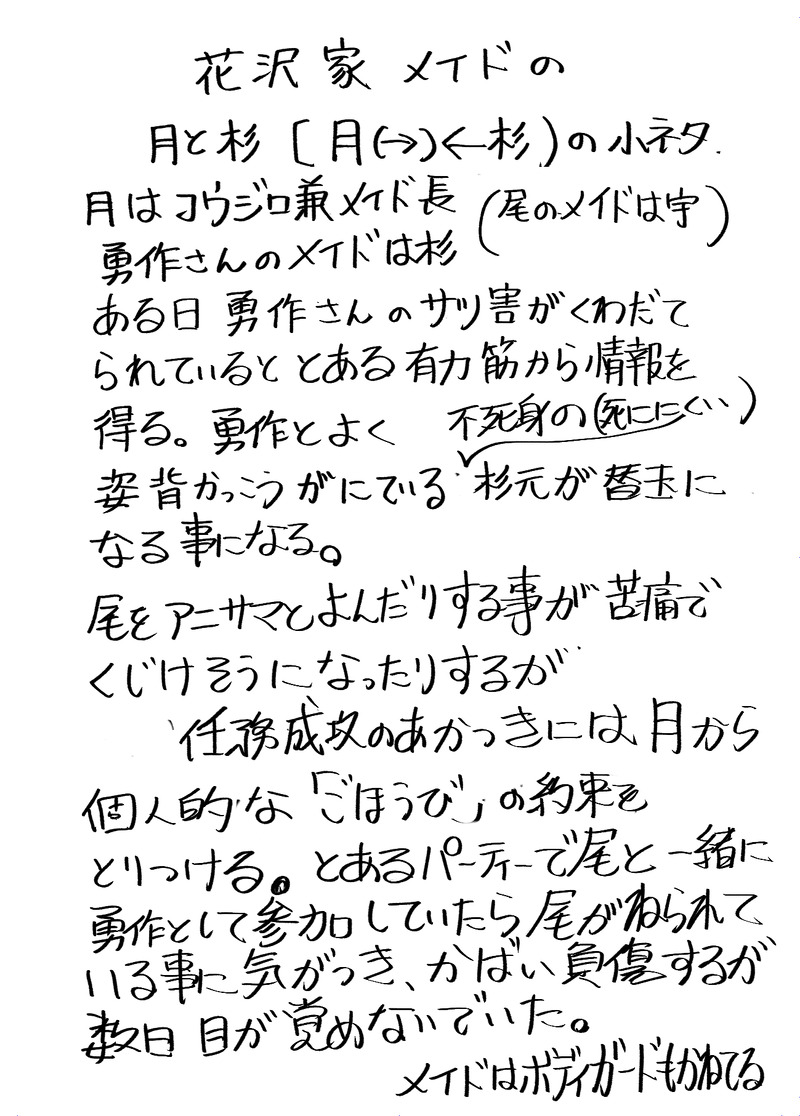 花沢家 メイドの
月と杉 [月(→)←杉)の小ネタ.
月はコウジロ兼メイド長 (尾のメイドは宇)
勇作さんのメイドは杉
ある日 勇作さんのサツ害がくわだて
られていると とある有力筋から情報を
得る。勇作とよく 不死身の(死ににくい)
姿背かっこうがにている 杉元が替玉に
なる事になる。
尾をアニサマとよんだりする事が苦痛で
くじけそうになったりするが
任務成攻のあかつきには月から
個人的な「ごほうび」の約束を
とりつける。とあるパーティーで尾と一緒に
勇作として参加していたら尾がねられて
いる事に気がつき、かばい負傷するが
数日 目が覚めないでいた。
メイドはボディガードもかねてる